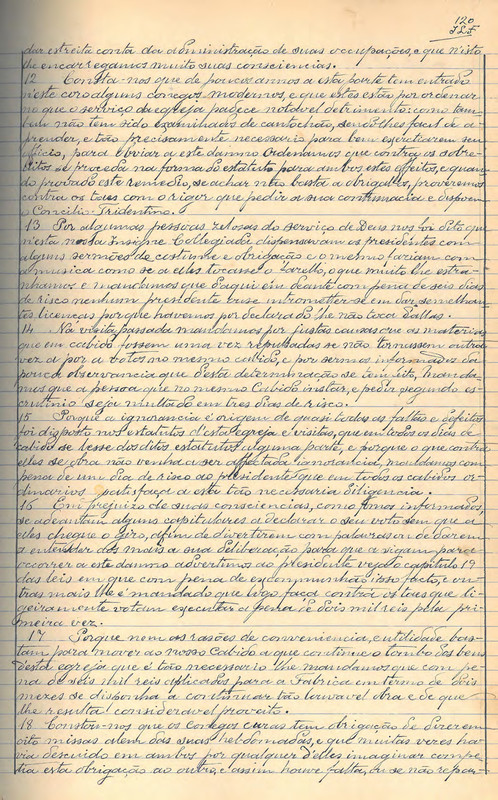 120
dar estreita conta da administração de suas occupações, e que n'isto
lhe encarregamos muito suas consciencias.
12 Consta-nos que de poucos annos a esta parte tem entrado
n'este coro alguns conegos modernos, e que estes estão por ordenar
no que o serviço da egreja padece notavel detrimento: como tam-
bem não tem sido examinados de cantochão, sendo lhes facil de a-
prender, e tão precisamente necessario para bem exercitarem seu
officio, para obviar a este damno ordenamos que contra os sobre-
ditos se proceda na forma do estatuto para ambos estes effeitos, e quan-
do provado este remedio, se achar não basta a obrigal-os, proveremos
contra os taes com o rigor que pedir a sua contumacia e dispoem
o Concilio Tridentino.
13 Por algumas pessoas zelosas do serviço de Deus nos foi dito que
n'esta nossa Insigne Collegiada dispensavam os presidentes com
alguns sermões de costume e obrigação e o mesmo fariam com
a musica como se a elles tocasse o fazel-o, o que muito lhe estra-
nhamos e mandamos que d'aqui em deante com pena de seis dias
de risco nenhum presidente ouse intrometter-se em dar semelhan-
tes licenças porque havemos por declarado lhe não toca dal-as.
14 Na visita passada mandamos por justas causas que as materias
que em cabido fossem uma vez reputadas se não tornassem outra
vez a por a votos no mesmo cabido, e por sermos informados da
pouca observancia que d'esta determinação se tem sido, manda-
mos que a pessoa que no mesmo Cabido instar, e pedir segundo es-
crutinio seja multado em tres dias de risco.
15 Porque a ignorancia é origem de quasi todas as faltas e defeitos
foi disposto nos estatutos d'esta egreja e visitas, que em todos os dias de
cabido se lesse dos ditos estatutos alguma parte, e porque o que contra
elles se obra não venha a ser affectada ignorancia, mandamos com
pena de um dia de risco ao presidente que em todos os cabidos or-
dinarios satisfaça a esta tão necessaria diligencia.
16 Em prejuizo de suas consciencias, como fomos informados,
se adeantam alguns capitulares a declarar o seu voto sem que a
elles chegue o giro, afim de divertirem com palavras ou de darem
a entender aos mais a sua deliberação para que a sigam para
occorrer a este damno advertimos ao presidente veja o capitulo 19
das leis em que com pena de excommunhão ipso facto, e ou-
tras mais lhe é mandado que logo faça contra os taes que li-
geiramente votam executar a pena de dois mil reis pela pri-
meira vez.
17 Porque nem as rasões de conveniencia, e utilidade bas-
tam para mover ao nosso Cabido a que continue o tombo dos bens
d'esta egreja que é tão necessario lhe mandamos que com pe-
na de seis mil reis aplicados para a Fabrica em termo de dois
mezes se disponha a continuar tão louvavel obra e de que
lhe resulta consideravel proveito.
18 Constou-nos que os conegos curas tem obrigação de dizerem
oito missas alem das suas hebdomadas, e que muitas vezes ha-
via descuido em ambos por qualquer d'elles imaginar compe-
tia esta obrigação ao outro, e assim houve falta, ou se não repar-